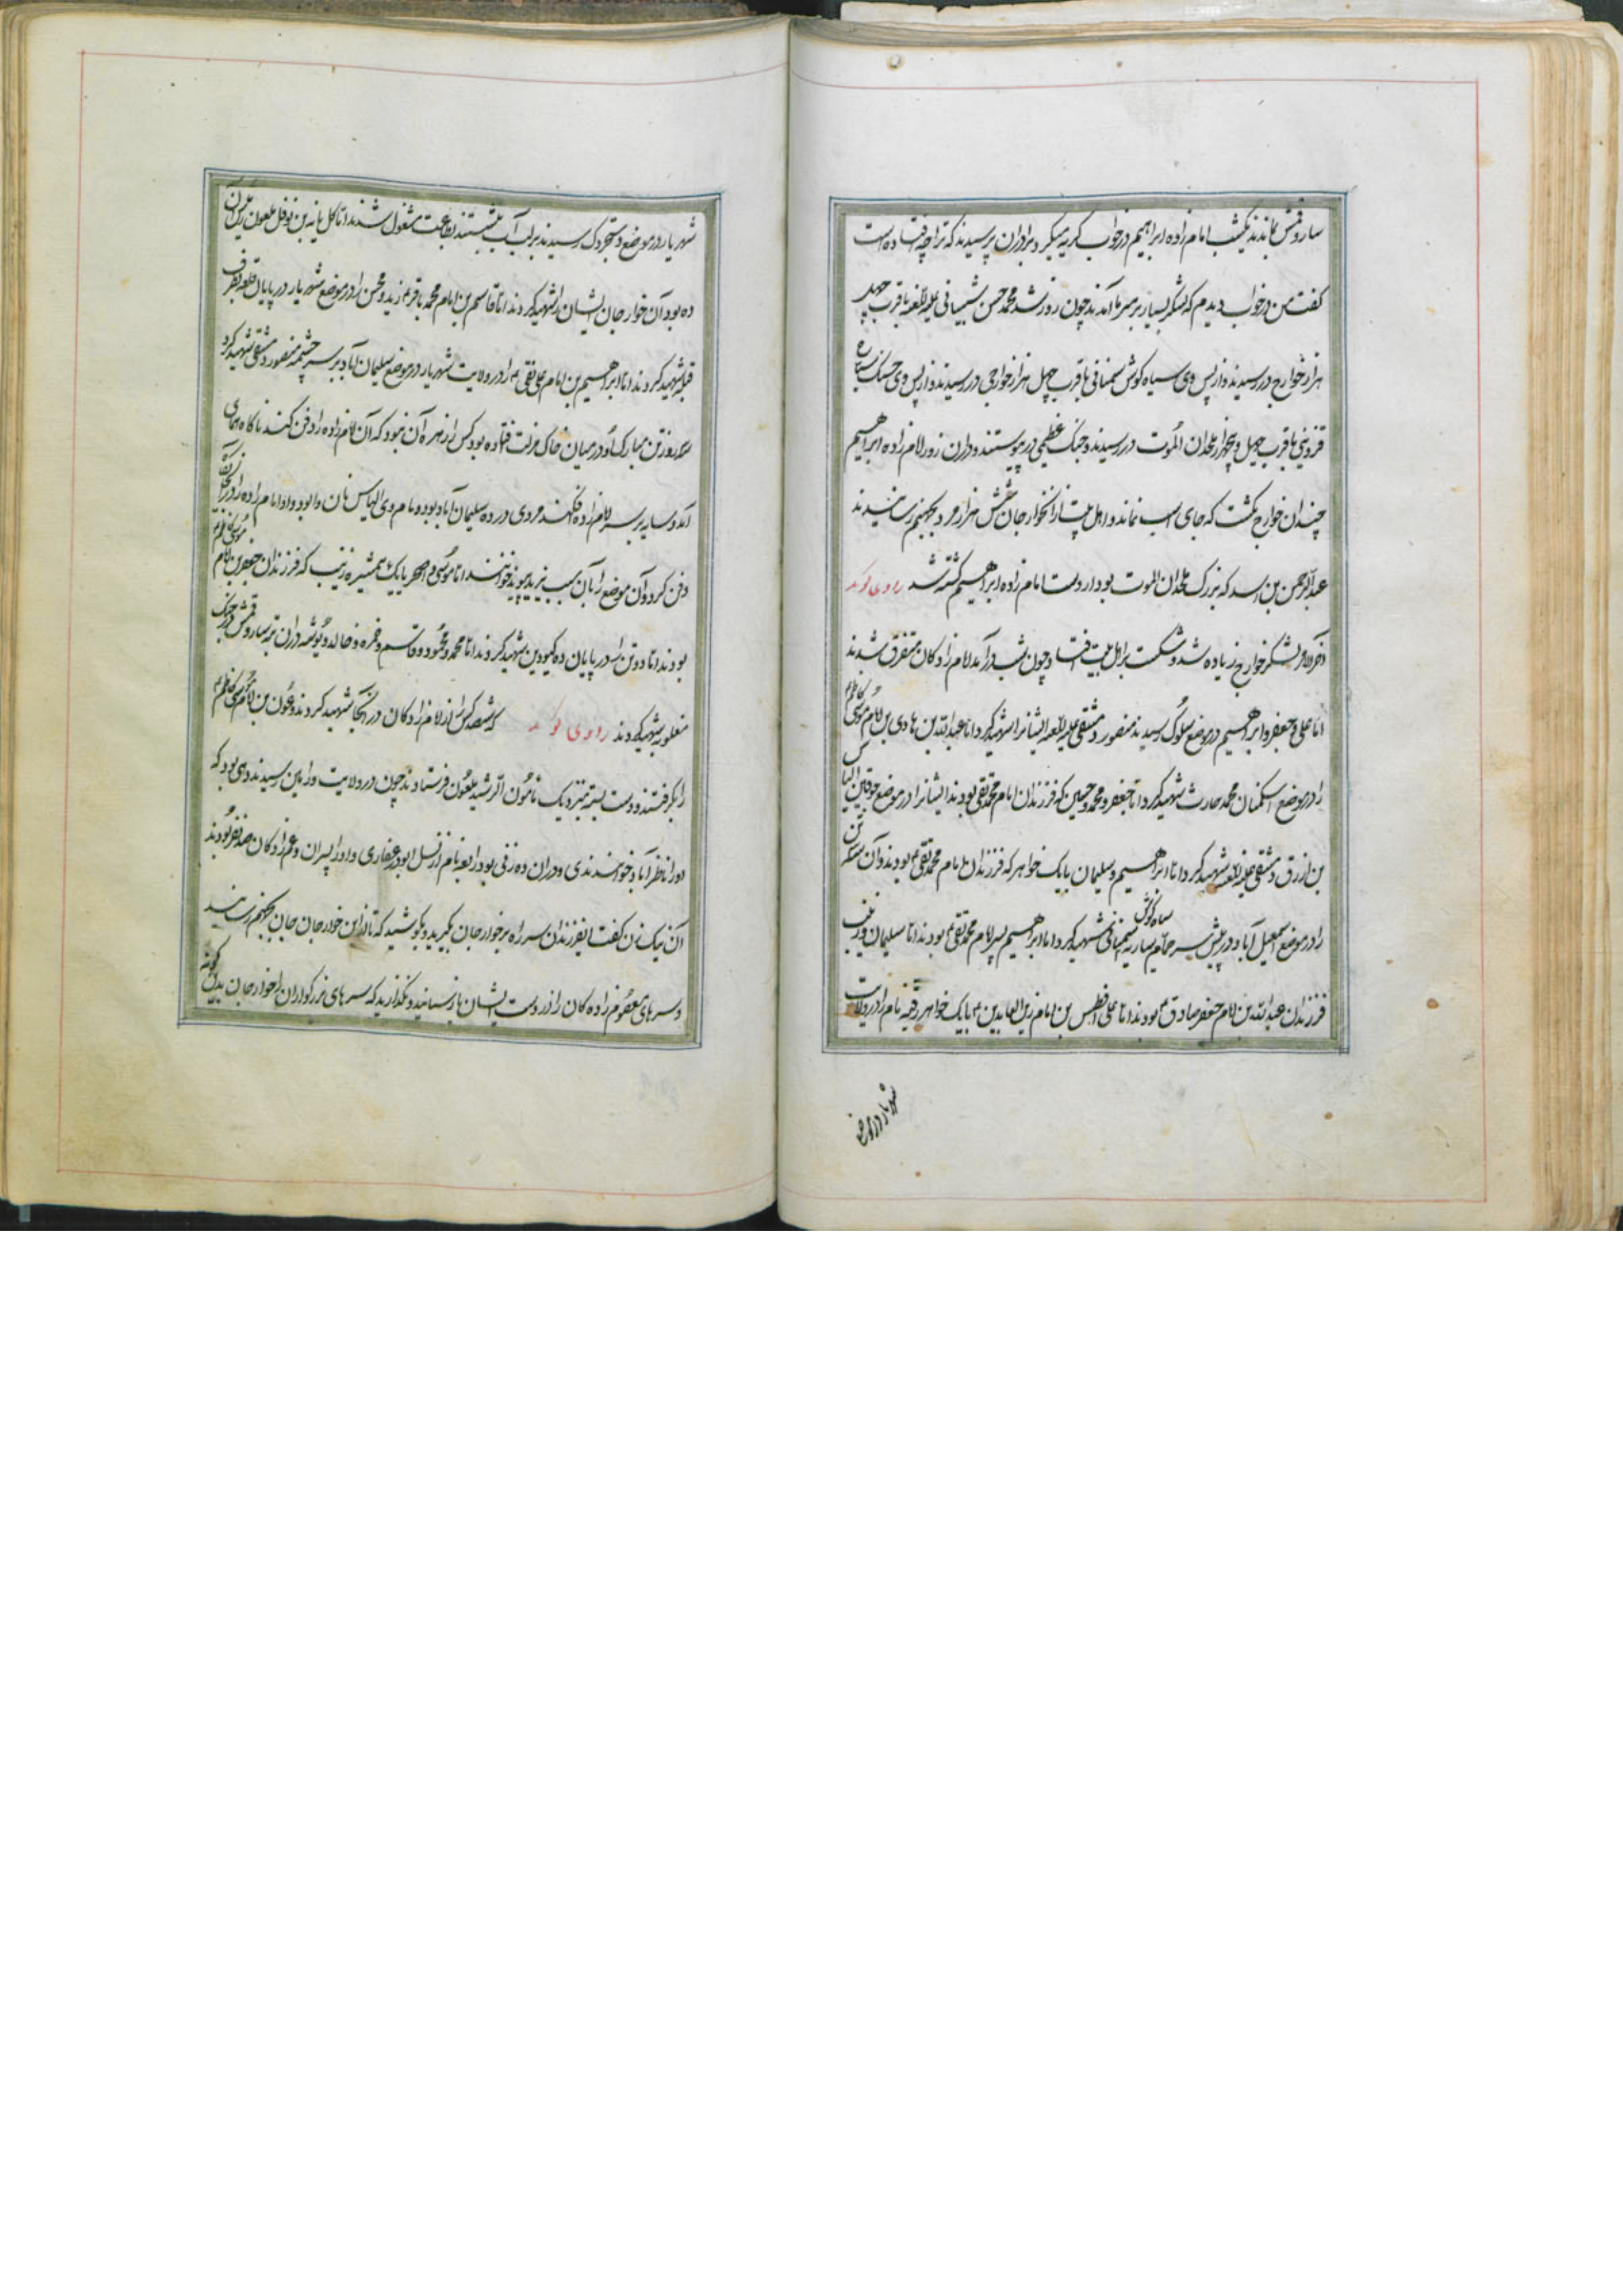 ساروقمش بماندند یکشب امام زاده ابراهیم در خواب گریه میکرد برادران پرسیدند که ترا چه افتاده است
گفت من در خواب دیدم که لشکر بسیار بر سر ما آمدند چون روز شد محمد حسن شیبانی علیه اللعنه با قرب چهل
هزار خوارج در رسیدند و از پس وی سیاه کوش سمنانی با قرب چهل هزار خوارجی در رسیدند و از پس وی خسک
قزوینی با قرب چهل و پنجهزار ملحدان الموت در رسیدند و جنگ عظیمی در پیوستند و در ان روز امام زاده ابراهیم
چندان خوارج بکشت که جای اسب نماند و اهل بیت از انخوارجان شش هزار مرد بجهنم رسانیدند
عبدالرحمن بن اسد که بزرگ ملحدان الموت بود از دست امام زاده ابراهیم کشته شد راوی گوید
آخر الامر لشکر خوارج زیاده شد و شکست بر اهل بیت افتاد و چون شب در آمد امام زادکان متفرق شدند
اما علی و جعفر و ابراهیم در موضع سلوک رسیدند منصور دمشقی علیه اللعنه ایشانرا شهید کرد اما عبدالله بن هادی بن امام موسی کاظم
را در موضع اسکنان محمد حارث شهید کرد اما جعفر و محمد و حسین که فرزندان امام محمد تقی بودند ایشانرا در موضع الیاس
بن ازرق دمشقی علیه اللعنه شهید کرد اما ابراهیم و سلیمان با یک خواهر که فرزندان امام محمد تقی بودند و آن سه تن
را در موضع اسمعیل آباد در پیش سر حمام سیاه کوش سمنانی شهید کرد اما ابراهیم پسر امام محمد تقی بودند اما سلیمان و زینب
فرزندان عبدالله بن امام جعفر صادق بودند اما علی افطس بن امام زین العابدین با یک خواهر رقیه نام را در ولایت
شهریار در موضع
شهریار در موضع دستجردک رسیدند بر لب آب بنشستند بطاعت مشغول شدند اما بن نوفل ملعون
ده بود آن خوارجان ایشان را شهید کردند اما قاسم بن امام محمد باقر زید و محسن را در موضع شهریار در پایان قلعه بطرف
قبله شهید کردند اما ابراهیم بن امام علی نقی را در ولایت شهریار در موضع سلیمان آباد بر سر چشمه منصور دمشقی شهید کرد
سه روز تن مبارک او در میان خاک مذلت افتاده بود کس را زهره آن نبود که آن امام زاده را دفن کند ناکاه همای
آمد و سایه بر سر امام زاده فکند مردی در ده سلیمان آباد بود و نام وی الیاس نان وا بود و او امام زاده را در آنجا
دفن کرد و آن موضع را بآن سبب خوانند اما موسی و اصغر با یک همشیره زینب که فرزندان جعفر بن امام موسی کاظم
بودند اما دو تن را در پایان ده کبودین شهید کردند اما محمد و محمود و قاسم و حمزه و خالد و در ان تپه ساروقمش در جنگ
مغلوبه شهید کردند راوی گوید که شصد کس از امام زادکان در آنجا شهید کردند و عون بن امام موسی کاظم
را بگرفتند و دست بسته بنزدیک مامون الرشید ملعون فرستادند چون در ولایت ورامین رسیدند دهی بود که
اورا ناظرآباد خوانندندی و در ان ده زنی بود رابعه نام از نسل ابوذر غفاری و او را پسران و عم زادکان صد نفر بودند
آن نیک زن گفت ایفرزندان سر راه بر خوارجان بگیرید و بکوشید که تا از این خوارجان جان بجهنم رسانید
و سر های معصوم زاده کان را از دست ایشان بازستانید و نگذارید که سر های بزرگواران را خوارجان بدین گونه